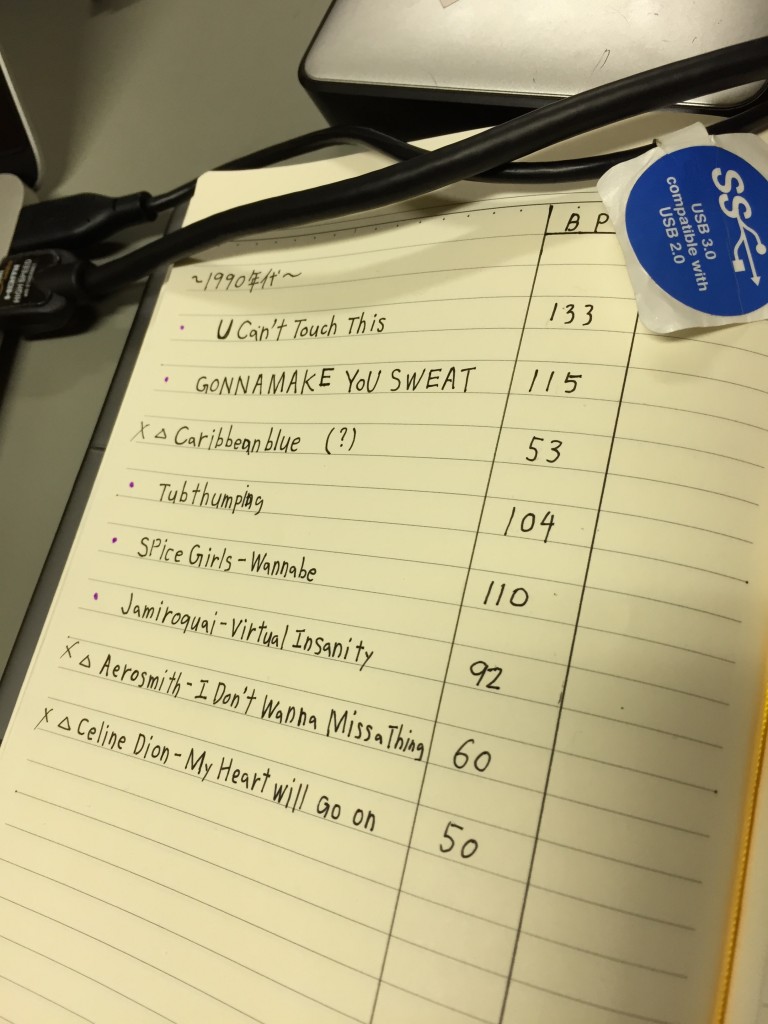 B P
~1990年代~
• U Can't Touch This 133
• GONNA MAKE YOU SWEAT 115
X △ Caribbean blue (?) 53
• Tubthumping 104
• SPice Girls - Wannabe 110
• Jamiroquai - Virtual Insanity 92
X △ Aerosmith - I Don't Wanna Miss a Thing 60
X △ Celine Dion - My Heart will Go on 50
SS
USB 3.0
compatible with
USB 2.0